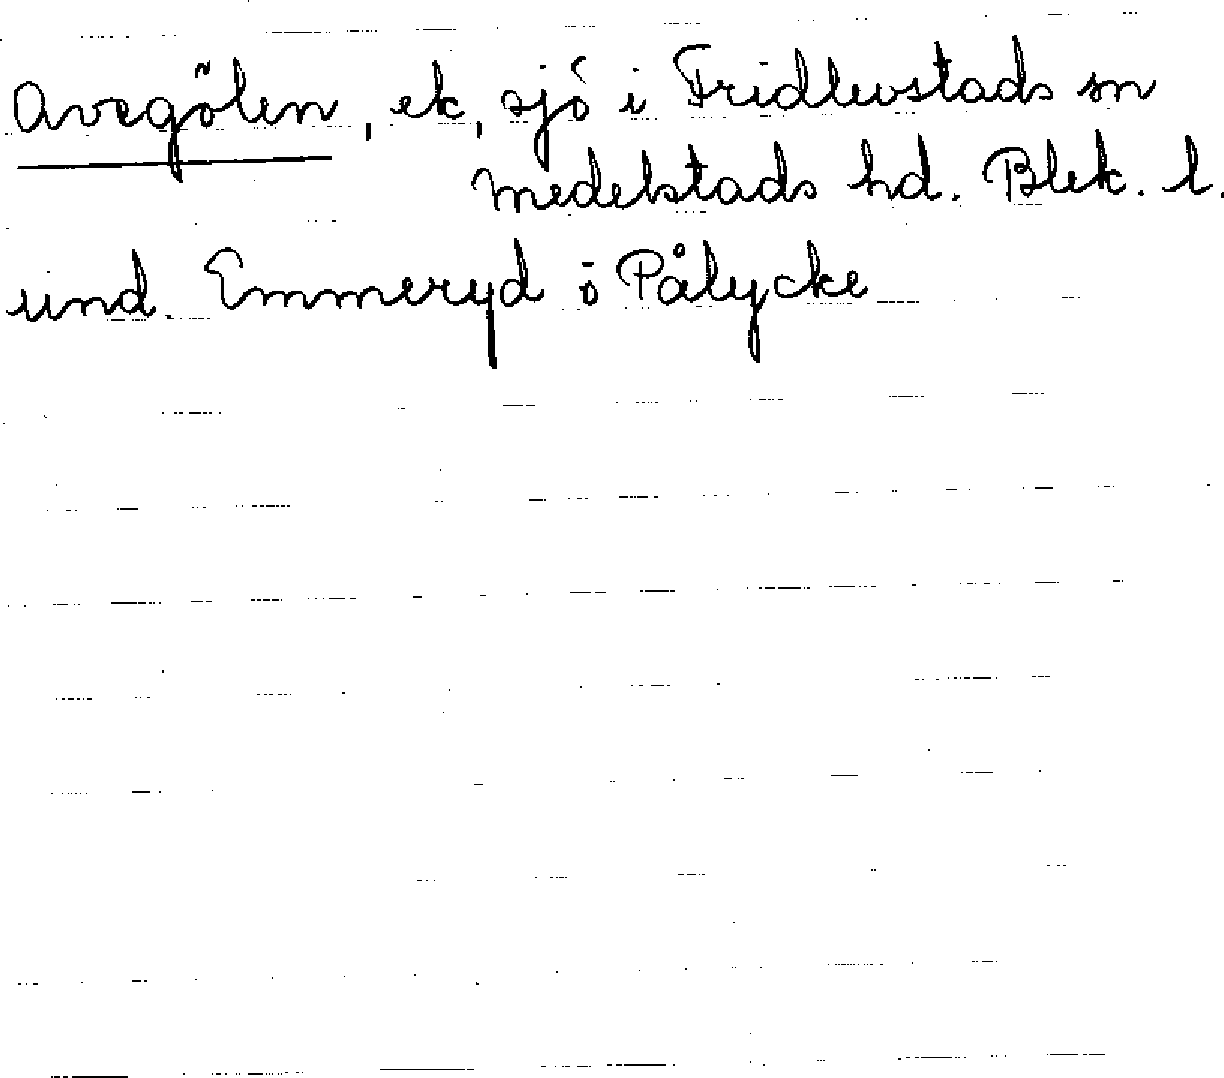 Avegölen, ek, sjö i Fridlevstads sn
Medelstads hd. Blek. l.
und. Emmeryd o Pålycke